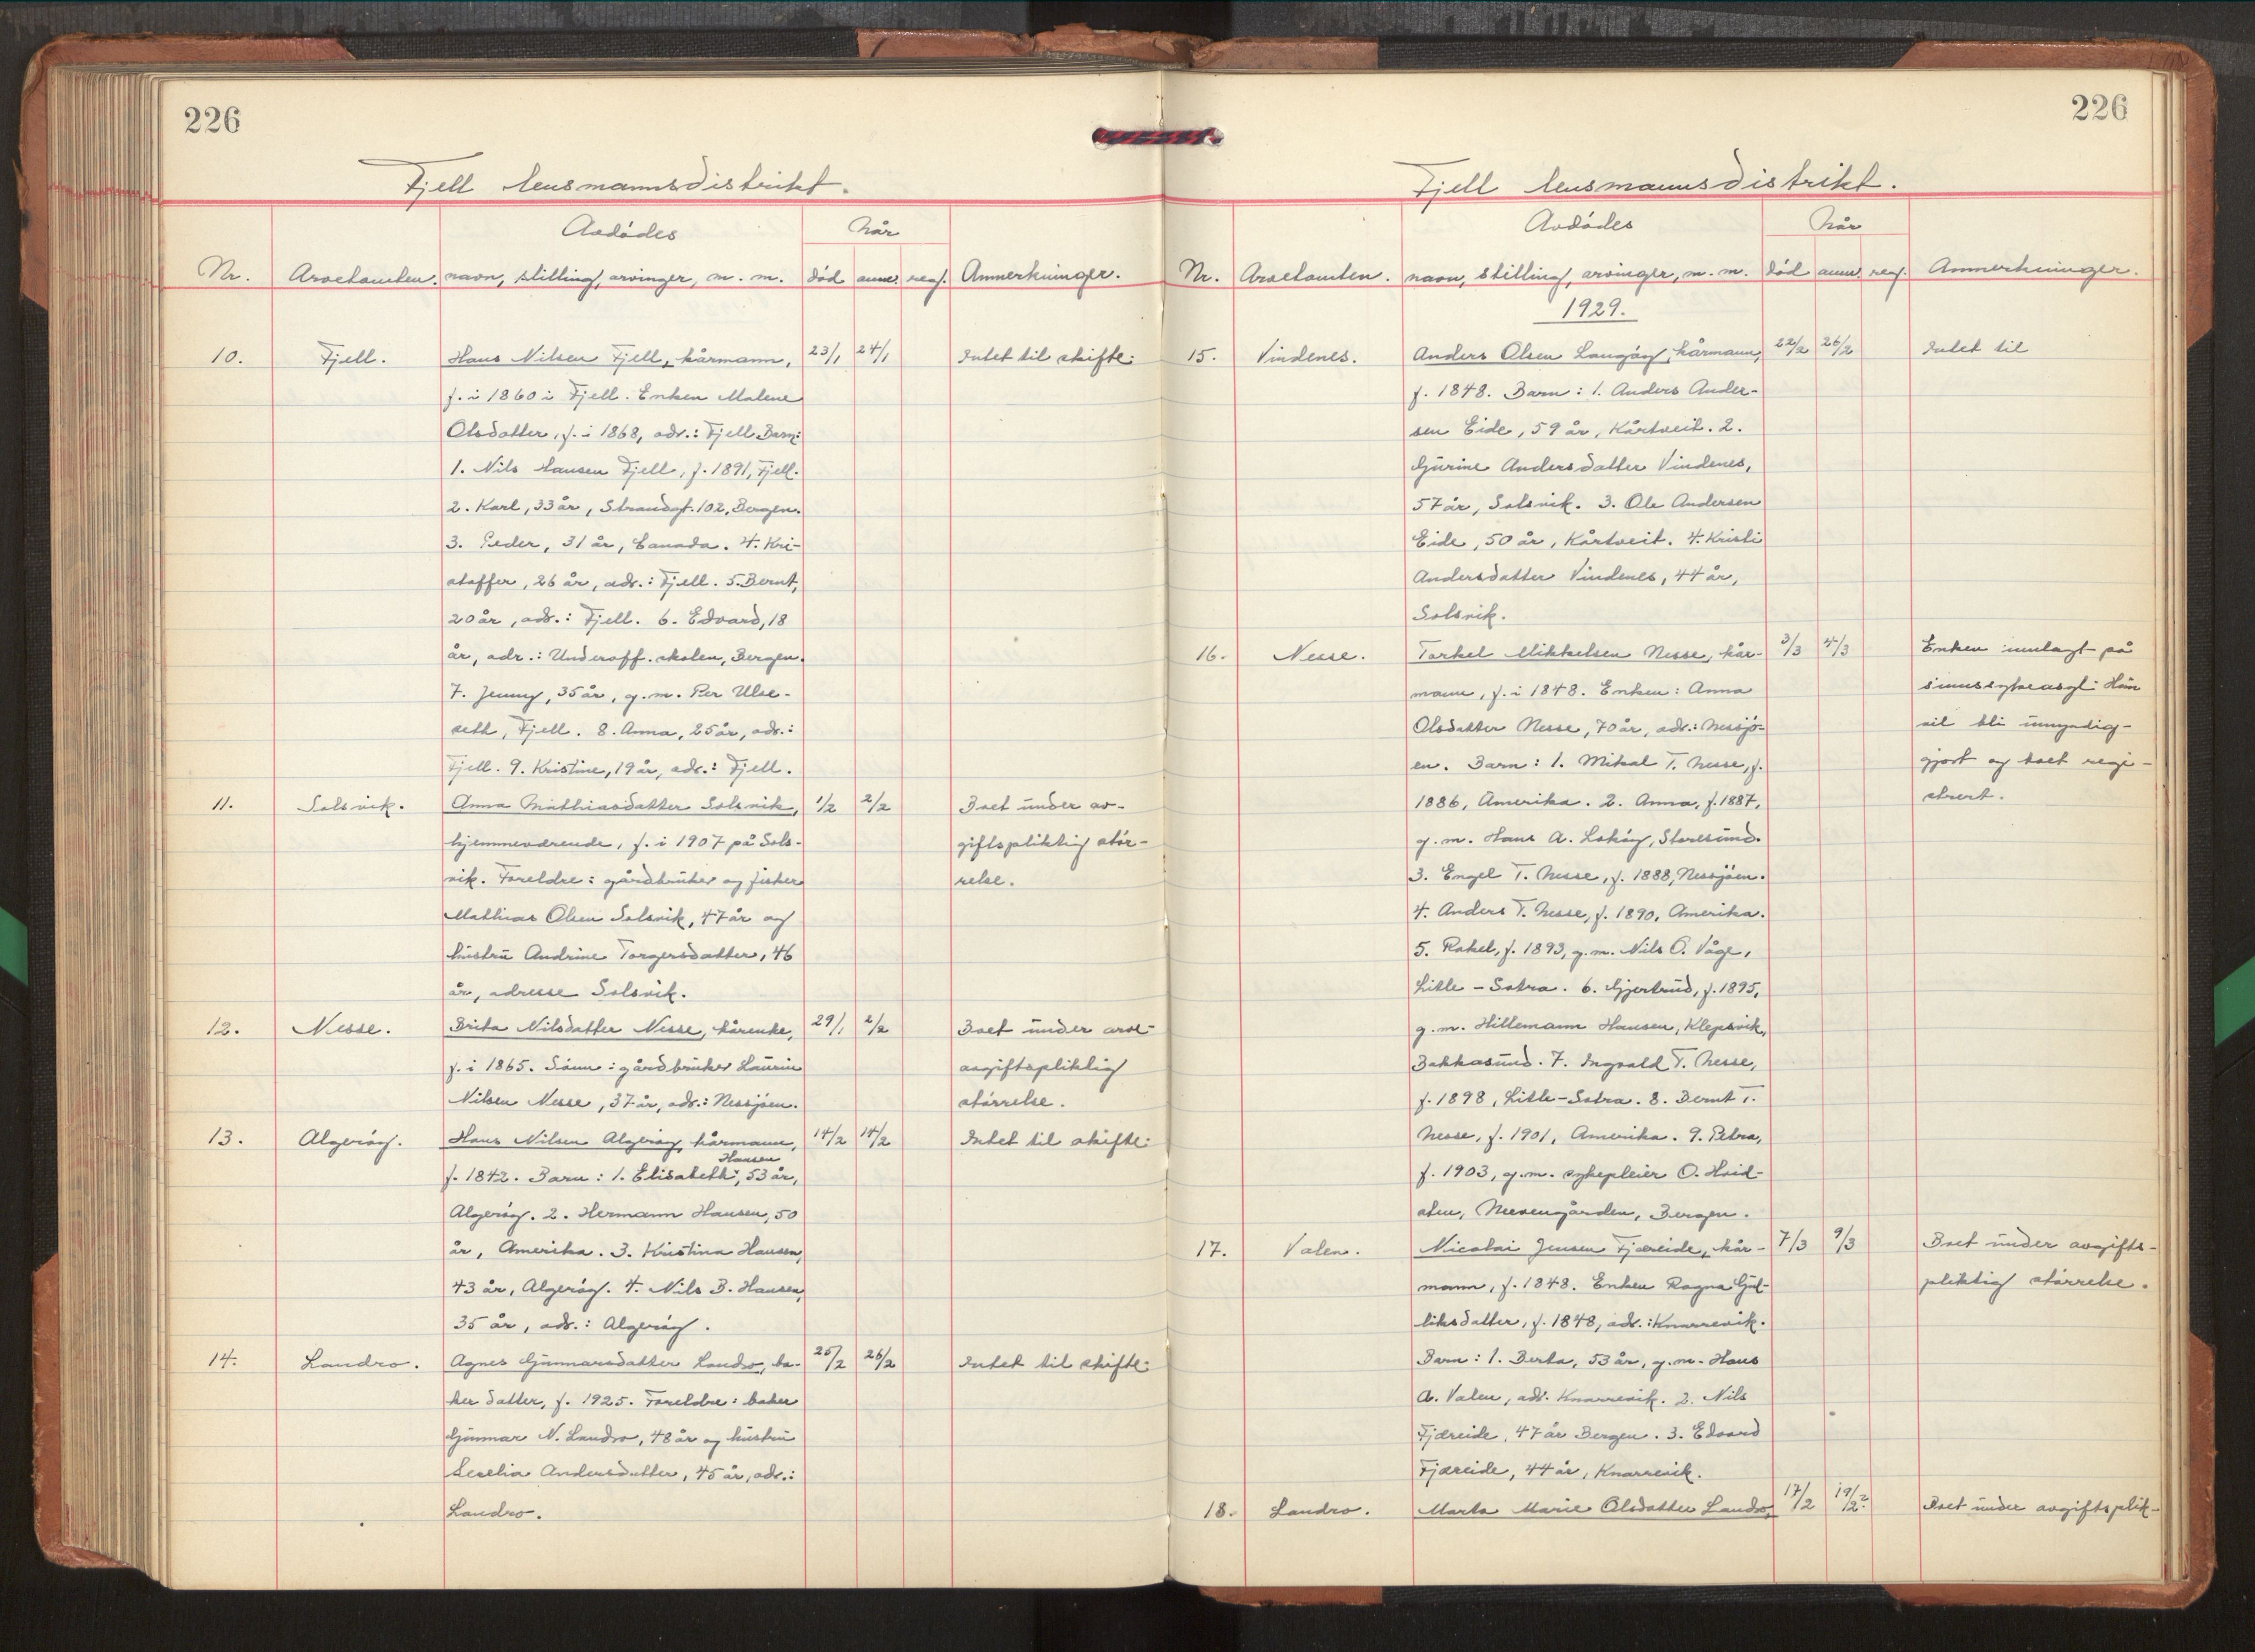 226
Fjell lensmannsdistrikt.
Avdødes
Når
Nr. Arvetomten. navn, stilling, arvinger, m. m. død anm. reg. Anmerkninger.
10. Fjell. Hans Nilsen Fjell, kårmann, 23/1 24/1 Intet til skifte.
f. i 1860 i Fjell. Enken Malene
Olsdatter, f. i 1868, adr.: Fjell. Barn:
1. Nils Hansen Fjell, f. 1891, Fjell.
2. Karl, 33 år, Strandgt. 102, Bergen.
3. Peder, 31 år, Canada. 4. Kri-
stoffer, 26 år, adr.: Fjell. 5. Bernt,
20 år, adr.: Fjell. 6. Edvard, 18
år, adr.: Underoff. skolen, Bergen.
7. Jenny, 35 år, g. m. Per Ulve-
seth, Fjell. 8. Anna, 25 år, adr.:
Fjell. 9. Kristine, 19 år, adr.: Fjell.
11. Solsvik. Anna Mathiasdatter Solsvik, 1/2 2/2 Boet under av-
hjemmeværende, f. i 1907 på Sols- giftspliktig stør-
vik. Foreldre: gårdbruker og fisker relse.
Mathias Olsen Solsvik, 47 år og
hustru Andrine Torgersdatter, 46
år, adresse Solsvik.
12. Nesse. Brita Nilsdatter Nesse, kårenke, 29/1 2/2 Boet under arve-
f. i 1865. Sønn: gårdbruker Laurin avgiftspliktig
Nilsen Nesse, 37 år, adr.: Nessjøen. størrelse.
13. Algerøy. Hans Nilsen Algerøy, kårmann, 14/2 14/2 Intet til skifte.
Hansen
f. 1842. Barn: 1. Elisabeth, 53 år,
Algerøy. 2. Hermann Hansen, 50
år, Amerika. 3. Kristina Hansen,
43 år, Algerøy. 4. Nils B. Hansen,
35 år, adr.: Algerøy.
14. Landro. Agnes Gunnarsdatter Landro, ba- 25/2 26/2 Intet til skifte.
ker datter, f. 1925. Foreldre: baker
Gunnar N. Landro, 48 år og hustru
Secelia Andersdatter, 45 år, adr.:
Landro.
226
Fjell lensmannsdistrikt.
Avdødes
Når
Nr. Arvetomten. navn, stilling, arvinger, m. m. død anm. reg. Anmerkninger.
1929.
15. Vindenes. Anders Olsen Langøy, kårmann, 22/2 26/2 Intet til
f. 1848. Barn: 1. Anders Ander-
sen Eide, 59 år, Kårtveit. 2.
Gurine Andersdatter Vindenes,
57 år, Solsvik. 3. Ole Andersen
Eide, 50 år, Kårtveit. 4. Kristi
Andersdatter Vindenes, 44 år,
Solsvik.
16. Nesse. Torkel Mikkelsen Nesse, kår- 3/3 4/3 Enken innlagt på
mann, f. i 1848. Enken: Anna sinnssykeasyl. Hun
Olsdatter Nesse, 70 år, adr.: Nessjø- vil bli umyndig-
en. Barn: 1. Mikal T. Nesse, f. gjort og boet regi-
1886, Amerika. 2. Anna, f. 1887, strert.
g. m. Hans A. Lokøy, Storesund.
3. Engel T. Nesse, f. 1888, Nessjøen.
4. Anders T. Nesse, f. 1890, Amerika.
5. Rakel, f. 1893, g. m. Nils O. Våge,
Litle-Sotra. 6. Gjertrud, f. 1895,
g. m. Hillemann Hansen, Klepsvik,
Bakkasund. 7. Ingvald T. Nesse,
f. 1898, Litle-Sotra. 8. Bernt T.
Nesse, f. 1901, Amerika. 9. Petra,
f. 1903, g. m. sykepleier O. Hvid-
sten, Neevengården, Bergen.
17. Valen. Nicolai Jensen Fjæreide, kår- 7/3 9/3 Boet under avgifts-
mann, f. 1848. Enken Ragna Gul- pliktig størrelse.
liksdatter, f. 1848, adr.: Knarrevik.
Barn: 1. Berta, 53 år, g. m. Hans
A. Valen, adr. Knarrevik. 2. Nils
Fjæreide, 47 år Bergen. 3. Edvard
Fjæreide, 44 år, Knarrevik.
18. Landro. Marta Marie Olsdatter Landro, 17/2 19/2? Boet under avgiftsplik-